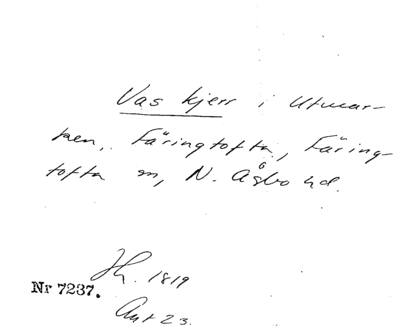 Vas kjerr i Utmar-
ken, Färingtofta, Färing-
tofta sn, N. Åsbo hd.
Nr 7237.
1819
Akt 23.